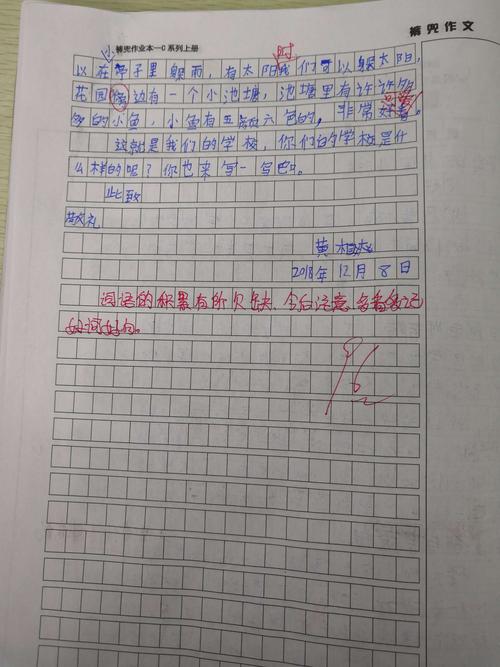 裤兜作文
小裤兜作业本一C系列上册
时
以在亭子里躲雨，有太阳我们可以躲太阳，
花园边有一个小池塘，池塘里有许许多
多的小鱼，小鱼有五颜六色的，非常好看。
这就是我们的学校，你们的学校是什
么样的呢？你也来写一写吧。
此致
敬礼
黄
2018年12月8日
词语的积累有所欠缺，今后注意多看多记
好词好句。